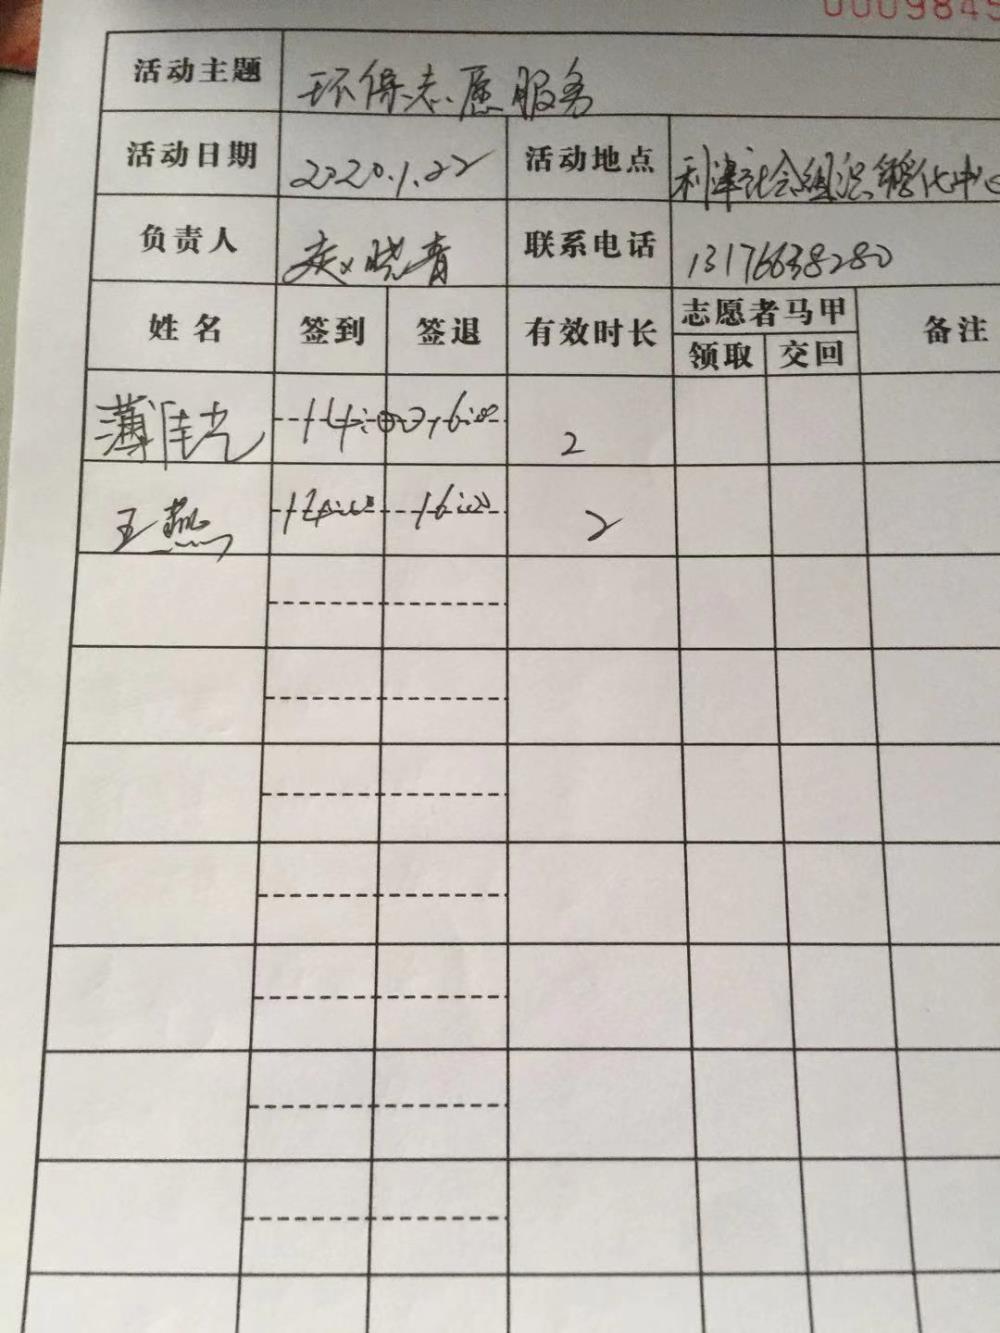 0009845
活动主题 环保志愿服务
活动日期 2020.1.22 活动地点 利津社会组织孵化中心
负责人 赵晓青 联系电话 13176638280
姓名 签到 签退 有效时长 志愿者马甲 备注
领取 交回
薄佳光 14:00 16:00 2
王燕 14:00 16:00 2